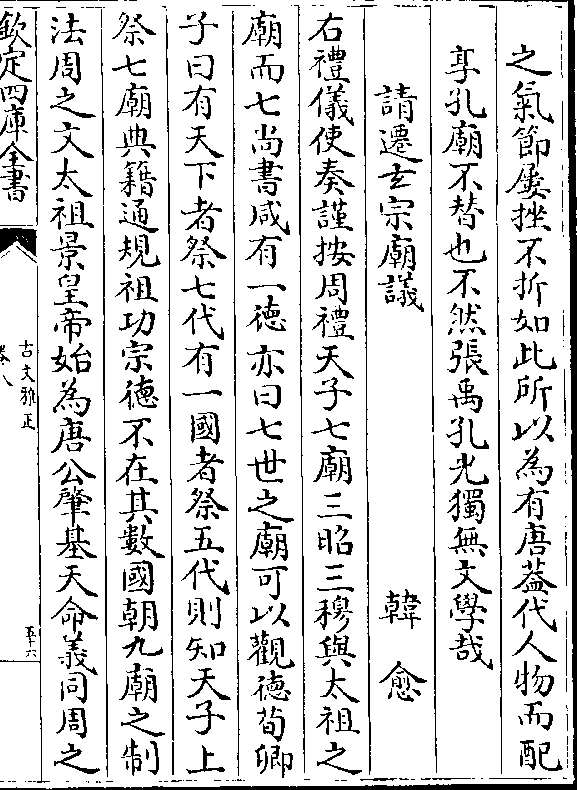 之氣節屢挫不折如此所以為有唐葢代人物而配
享孔廟不替也不然張禹孔光獨無文學哉
請遷玄宗廟議 韓愈
右禮儀使奏謹按周禮天子七廟三昭三穆與太祖之
廟而七尚書咸有一徳亦曰七世之廟可以觀德荀卿
子曰有天下者祭七代有一國者祭五代則知天子上
祭七廟典籍通規祖功宗德不在其數國朝九廟之制
法周之文太祖景皇帝始為唐公肇基天命義同周之
欽定四庫全書
古文雅正
卷八
五十六